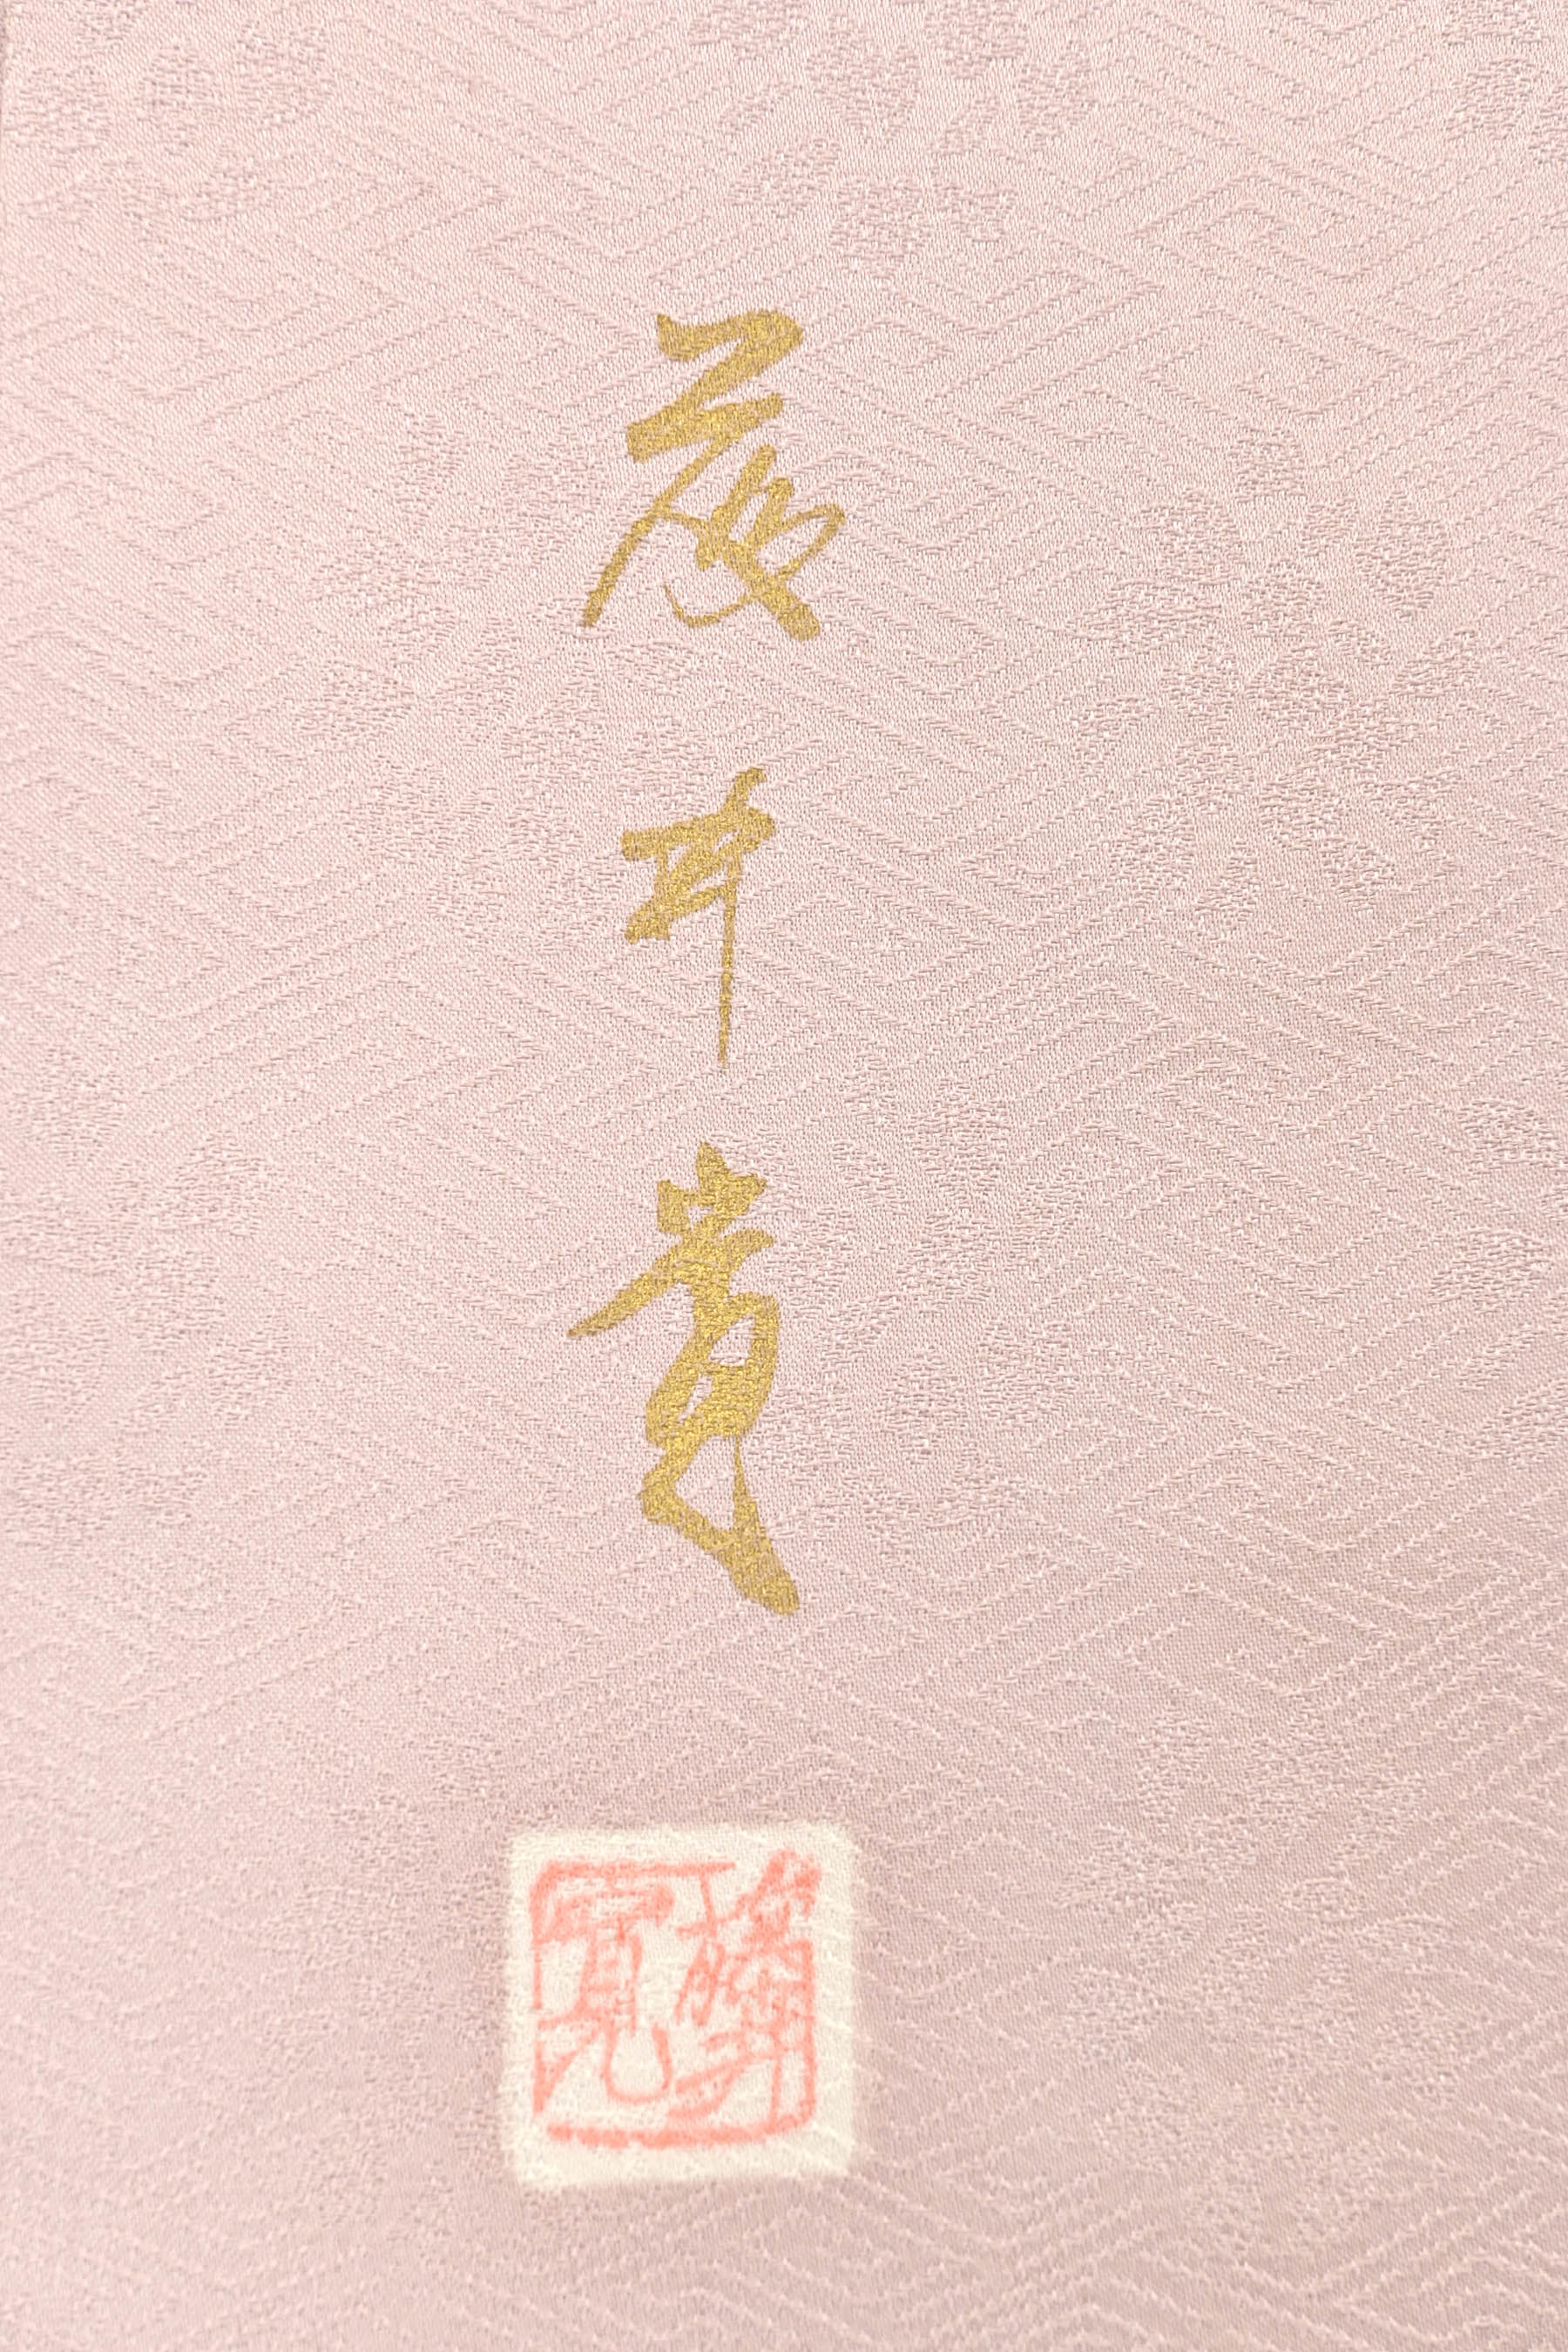 藤井寛
藤井
寛